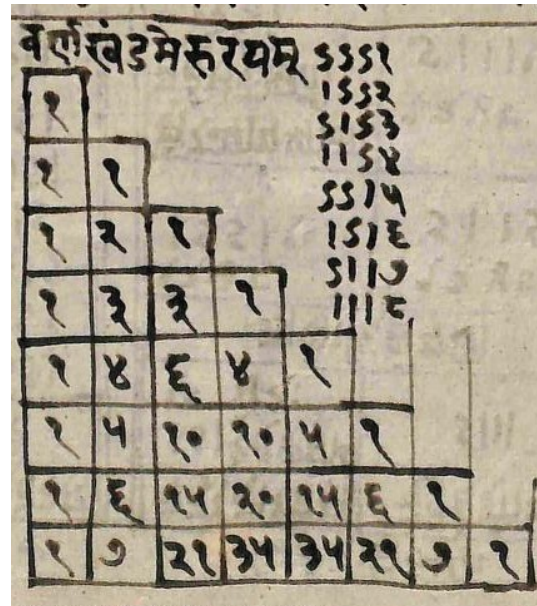 वर्णखंडमेरुरयम् ऽऽऽ१
।ऽऽ२
ऽ।ऽ३
।।ऽ४
ऽऽ।५
।ऽ।६
ऽ।।७
।।।८
१
१ १
१ २ १
१ ३ ३ १
१ ४ ६ ४ १
१ ५ १० १० ५ १
१ ६ १५ २० १५ ६ १
१ ७ २१ ३५ ३५ २१ ७ १